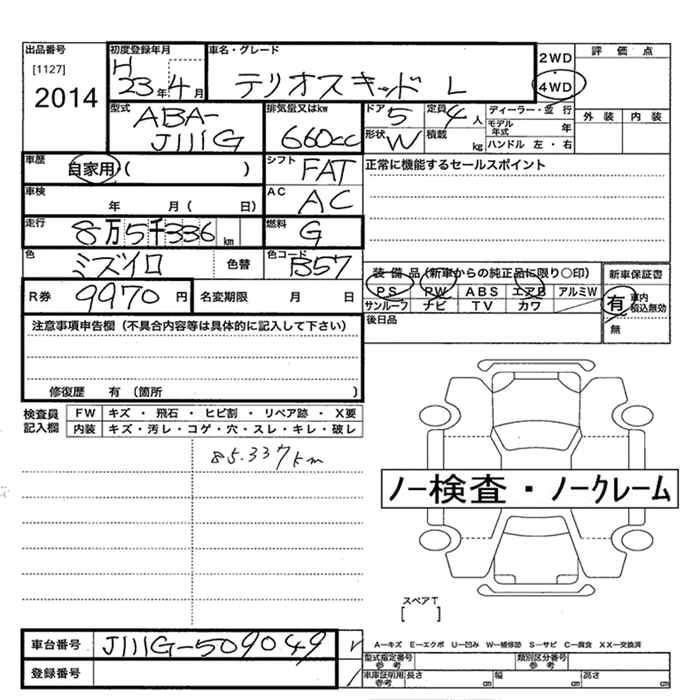 出品番号
[1127]
2014
初度登録年月
H
23年4月
車名・グレード
テリオスキッド L
2WD
4WD
評価点
外装 内装
型式
ABA-
J111G
排気量又はkw
660cc
ドア 5
定員 4人
形状 W
積載 kg
ディーラー・並行
モデル年式 年
ハンドル 左・右
車歴
自家用・( )
シフト FAT
正常に機能するセールスポイント
車検
年 月( 日)
AC
AC
走行
8万5千336km
燃料
G
色
ミズイロ
色替
色コード
B57
装備品(新車からの純正品に限り○印)
PS PW ABS エアB アルミW
サンルーフ ナビ TV カワ
後日品
新車保証書
有 車内積込無効
無
R券
9970円
名変期限 月 日
注意事項申告欄(不具合内容等は具体的に記入して下さい)
修復歴 有(箇所 )
検査員
記入欄
FW キズ・飛石・ヒビ割・リペア跡・X要
内装 キズ・汚レ・コゲ・穴・スレ・キレ・破レ
85.337km
ノー検査・ノークレーム
スペアT
[ ]
車台番号
J111G-509049
登録番号
A−キズ E−エクボ U−凹み W−補修跡 S−サビ C−腐食 XX−交換済
型式指定番号
参考
類別区分番号
参考
車庫証明用
参考
長さ cm
幅 cm
高さ cm